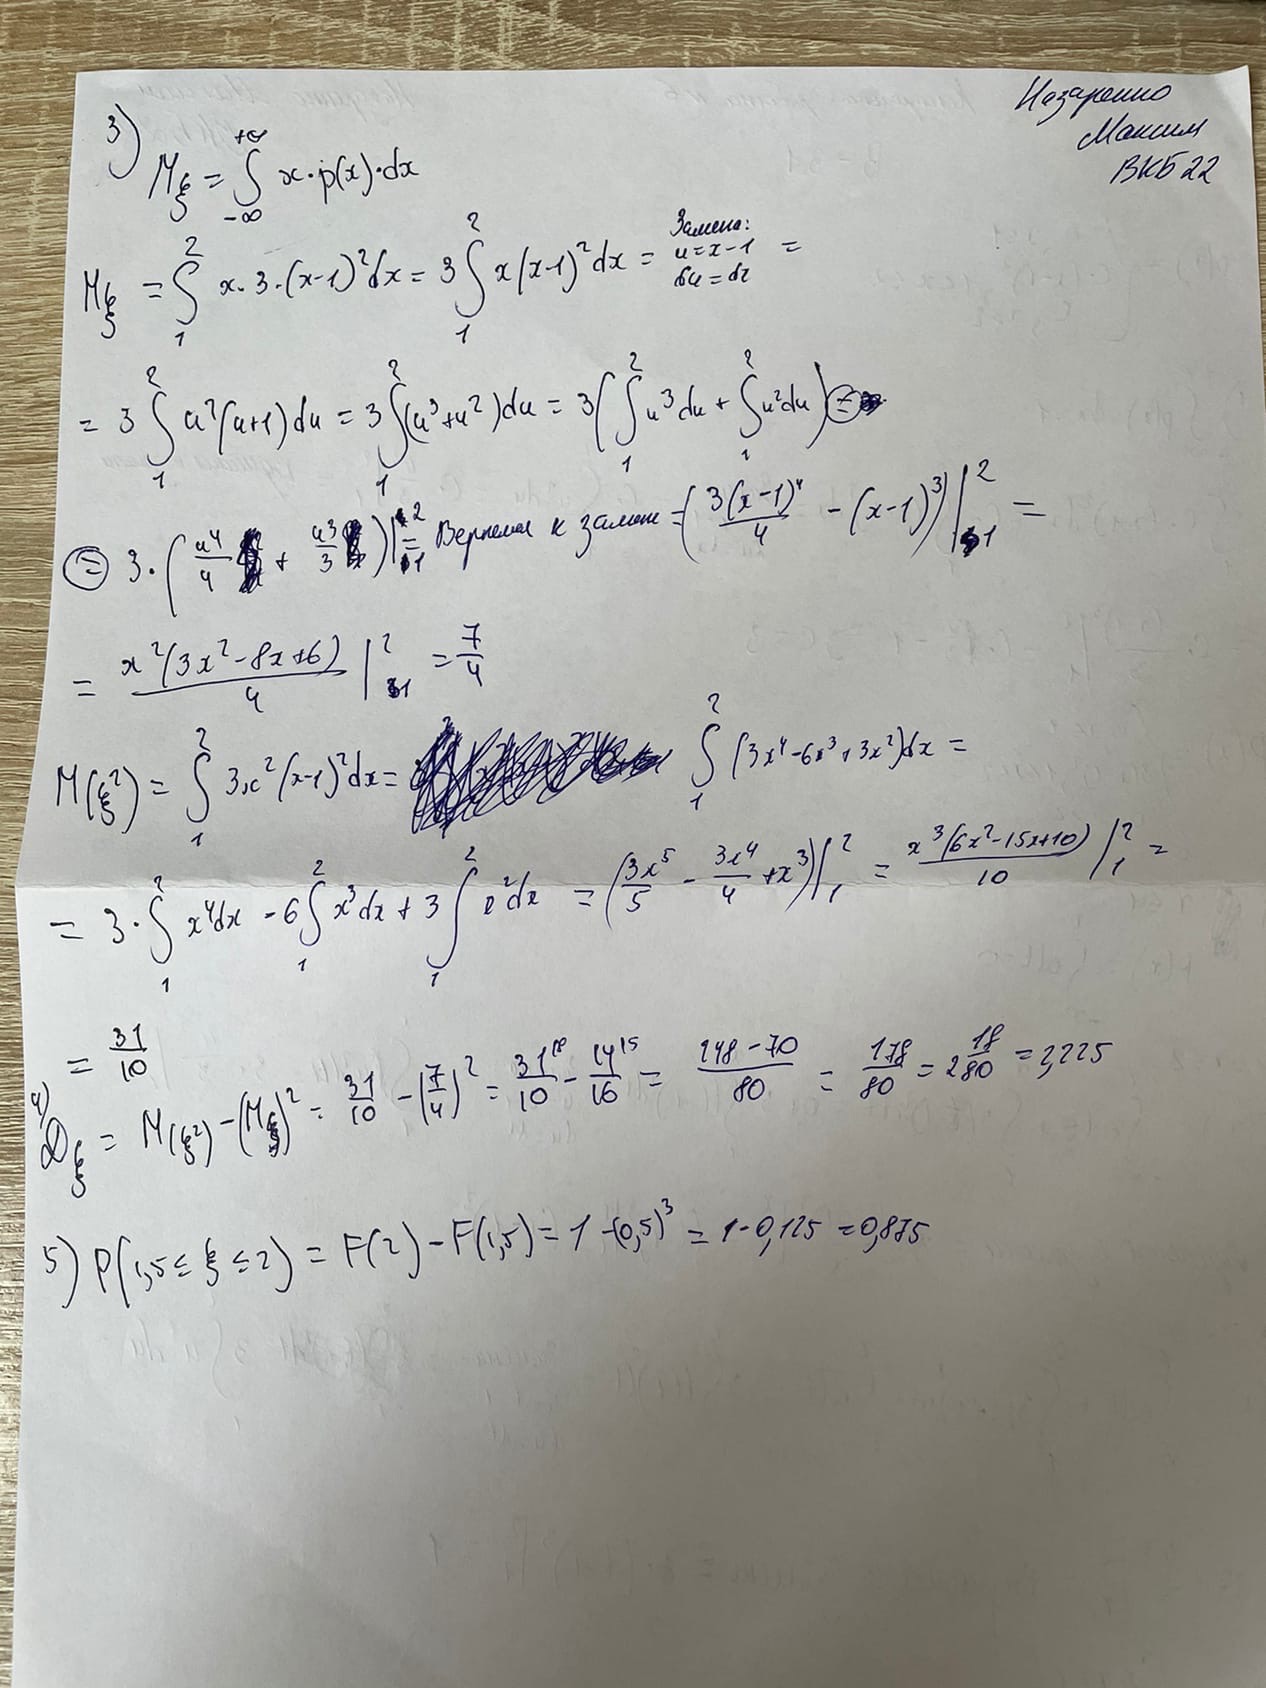 Назаренко
Максим
ВКБ22
3) Mξ = ∫_{-∞}^{+∞} x·p(x)·dx
Mξ = ∫_1^2 x·3·(x-1)²dx = 3∫_1^2 x(x-1)²dx = Замена: u=x-1 du=dx =
= 3∫_1^2 u²(u+1)du = 3∫_1^2 (u³+u²)du = 3(∫_1^2 u³du + ∫_1^2 u²du) =
= 3·(u⁴/4 + u³/3)|_1^2 = Вернемся к замене = (3(x-1)⁴/4 - (x-1)³)|_1^2 =
= x²(3x²-8x+6)/4 |_1^2 = 7/4
M(ξ²) = ∫_1^2 3x²(x-1)²dx = ∫_1^2 (3x⁴-6x³+3x²)dx =
= 3·∫_1^2 x⁴dx - 6∫_1^2 x³dx + 3∫_1^2 x²dx = (3x⁵/5 - 3x⁴/4 + x³)|_1^2 = x³(6x²-15x+10)/10 |_1^2 =
= 31/10
4) Dξ = M(ξ²) - (Mξ)² = 31/10 - (7/4)² = 31/10 - 14/16 = 248-70/80 = 178/80 = 2 18/80 = 2,225
5) P(1,5 ≤ ξ ≤ 2) = F(2) - F(1,5) = 1 - (0,5)³ = 1-0,125 = 0,875